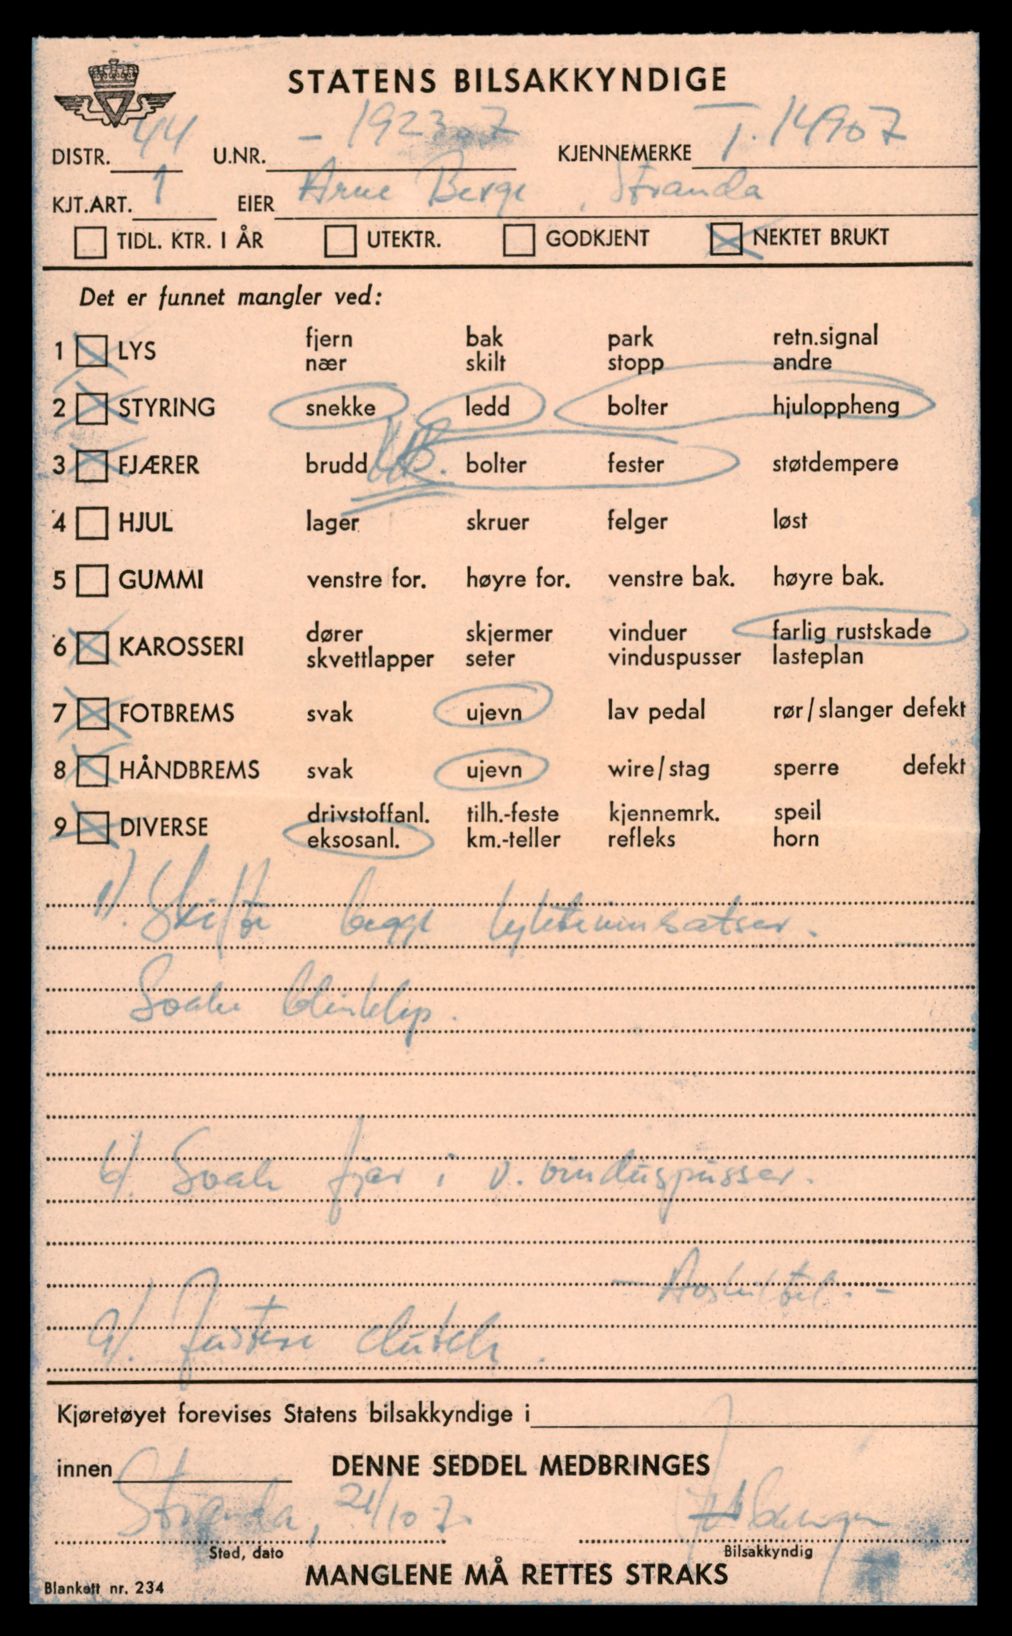 STATENS BILSAKKYNDIGE
DISTR. 44 U.NR. - 192307 KJENNEMERKE T. 14907
KJT.ART. 1 EIER Arne Berge, Stranda
TIDL. KTR. I ÅR UTEKTR. GODKJENT NEKTET BRUKT
Det er funnet mangler ved:
1 LYS fjern bak park retn.signal
nær skilt stopp andre
2 STYRING snekke ledd bolter hjuloppheng
3 FJÆRER brudd bolter fester støtdempere
4 HJUL lager skruer felger løst
5 GUMMI venstre for. høyre for. venstre bak. høyre bak.
6 KAROSSERI dører skjermer vinduer farlig rustskade
skvettlapper seter vinduspusser lasteplan
7 FOTBREMS svak ujevn lav pedal rør/slanger defekt
8 HÅNDBREMS svak ujevn wire/stag sperre defekt
9 DIVERSE drivstoffanl. tilh.-feste kjennemrk. speil
eksosanl. km.-teller refleks horn
1). Skifte begge lykteinnsatser.
Svake blinklys.
6). Svak fjær i v. vinduspusser.
- Avskiltet. -
9). Justere clutch.
Kjøretøyet forevises Statens bilsakkyndige i
innen DENNE SEDDEL MEDBRINGES
Stranda, 21/10-7
Sted, dato Bilsakkyndig
MANGLENE MÅ RETTES STRAKS
Blankett nr. 234